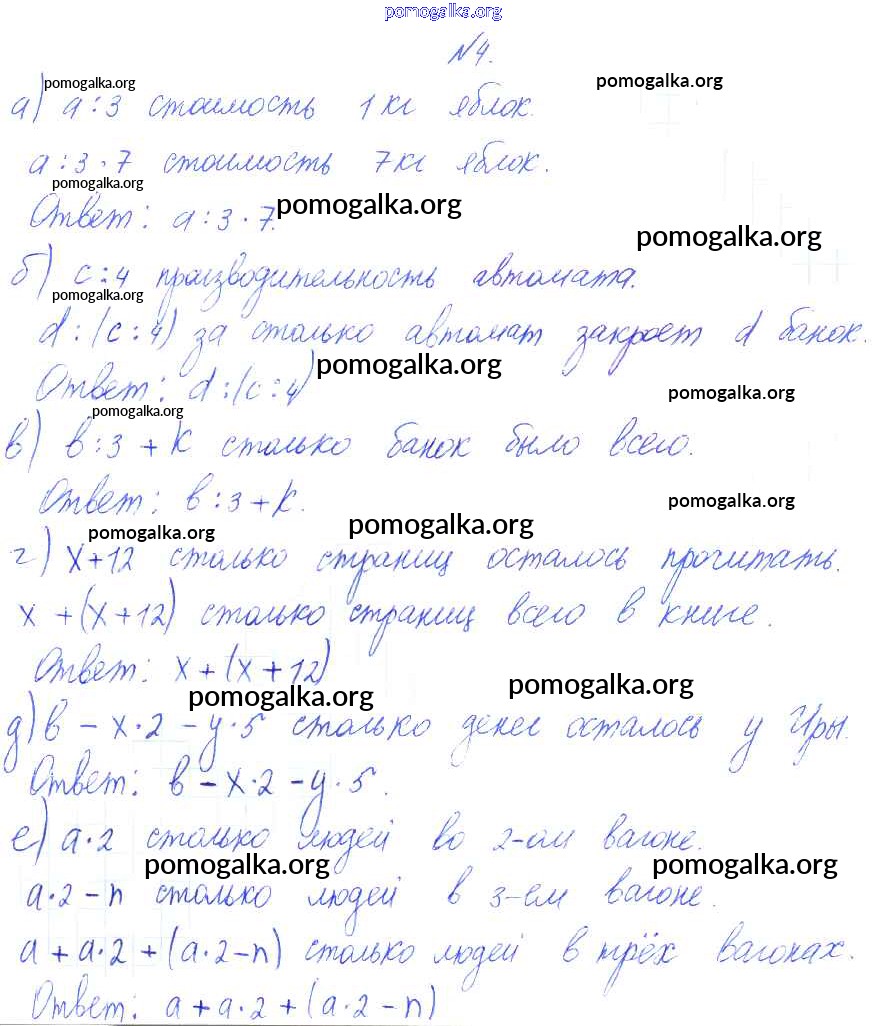 pomogalka.org
№4.
pomogalka.org pomogalka.org
а) a:3 стоимость 1 кг яблок.
a:3·7 стоимость 7 кг яблок.
pomogalka.org
Ответ: a:3·7. pomogalka.org
pomogalka.org
б) c:4 производительность автомата.
pomogalka.org
d:(c:4) за столько автомат закроет d банок.
pomogalka.org
Ответ: d:(c:4)
pomogalka.org
pomogalka.org
в) b:3+k столько банок было всего.
Ответ: b:3+k.
pomogalka.org
pomogalka.org pomogalka.org
г) x+12 столько страниц осталось прочитать.
x+(x+12) столько страниц всего в книге.
Ответ: x+(x+12)
pomogalka.org pomogalka.org
д) b-x·2-y·5 столько денег осталось у Иры.
Ответ: b-x·2-y·5.
е) a·2 столько людей во 2-ом вагоне.
pomogalka.org pomogalka.org
a·2-n столько людей в 3-ем вагоне.
a+a·2+(a·2-n) столько людей в трёх вагонах.
Ответ: a+a·2+(a·2-n)